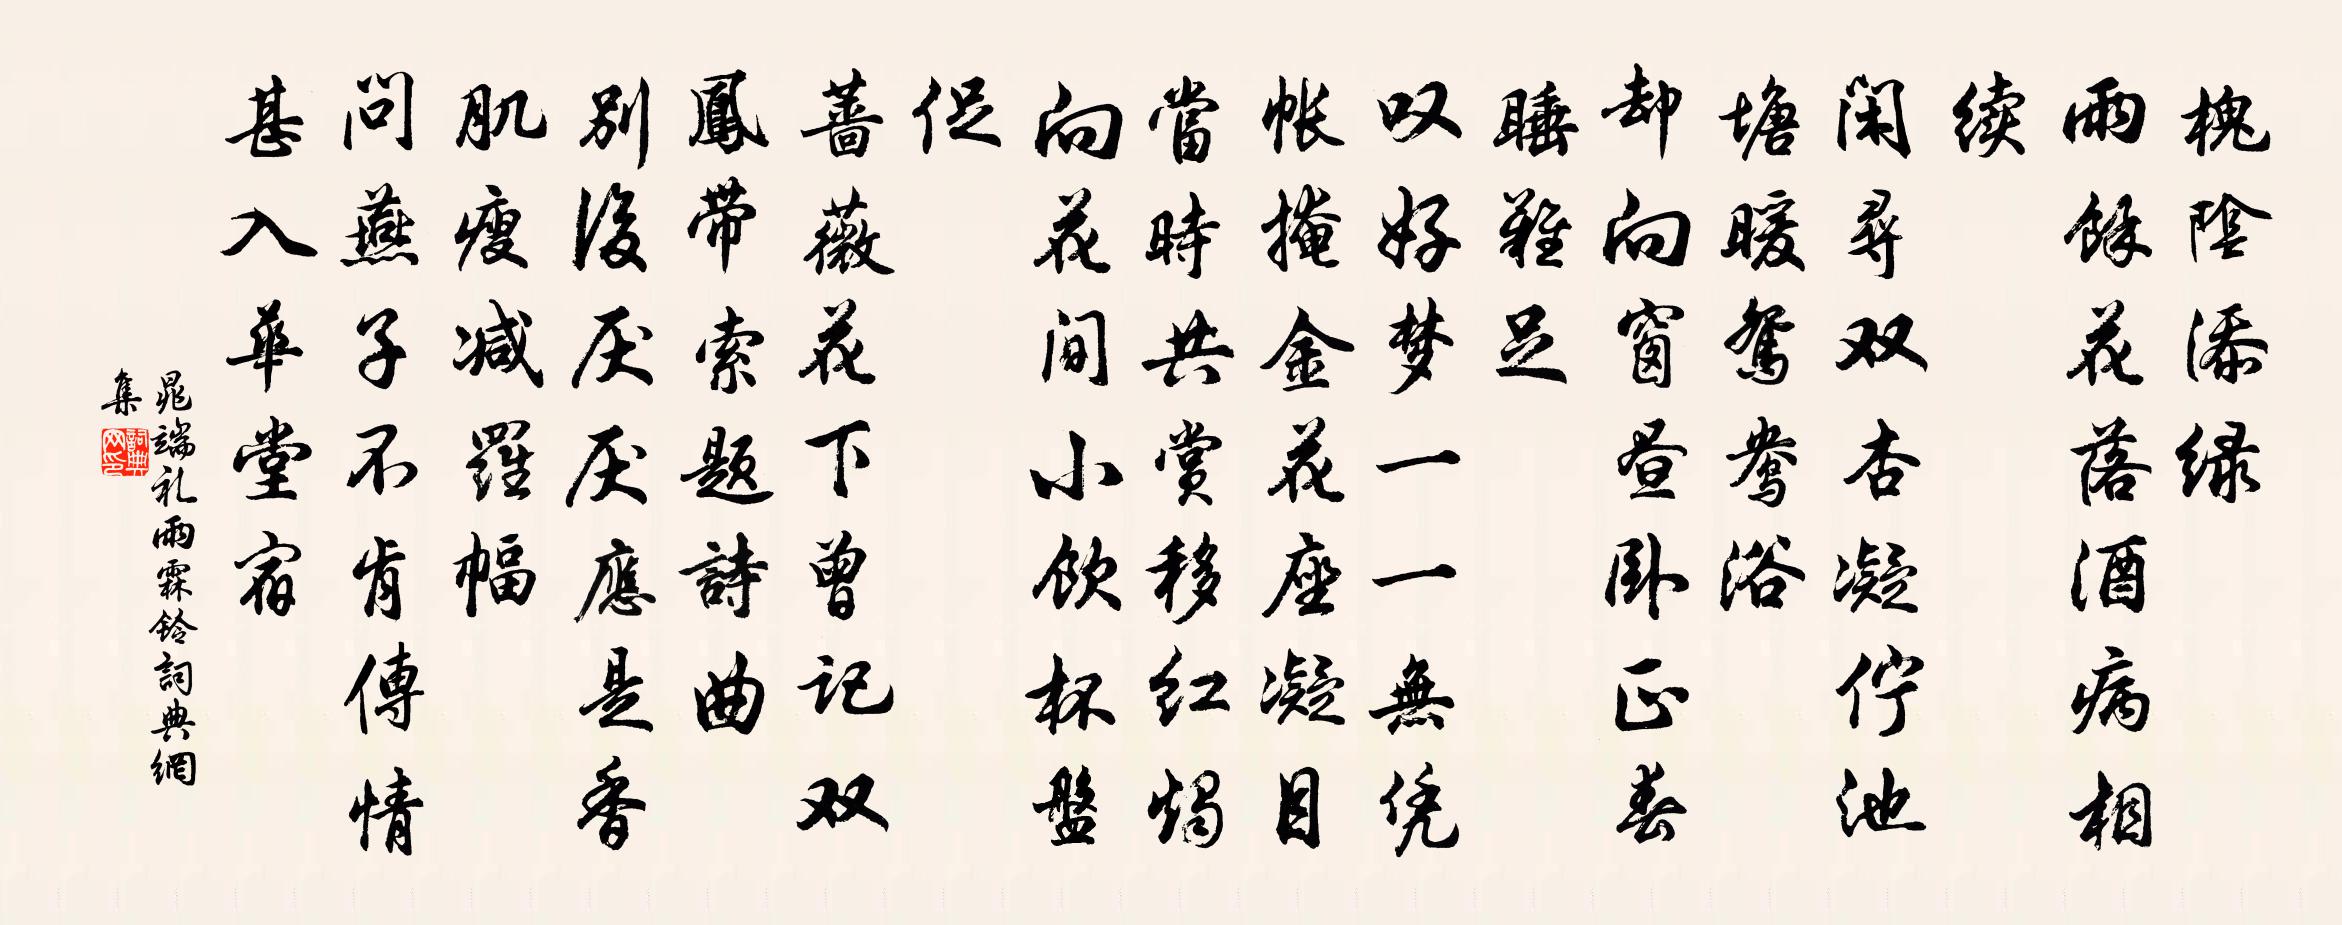 槐陰添绿
雨餘花落酒病相
续
闲尋双杏凝佇池
塘暖鸳鸯浴
却向窗昼卧正春
睡難足
叹好梦一一無凭
帐掩金花座凝目
當時共赏移红燭
向花间小饮杯盤
促
蔷薇花下曾记双
鳳带索题詩曲
别後厌厌應是香
肌瘦减羅幅
問燕子不肯傳情
甚入華堂宿
晁端礼雨霖鈴詞典網
集
詞典网印